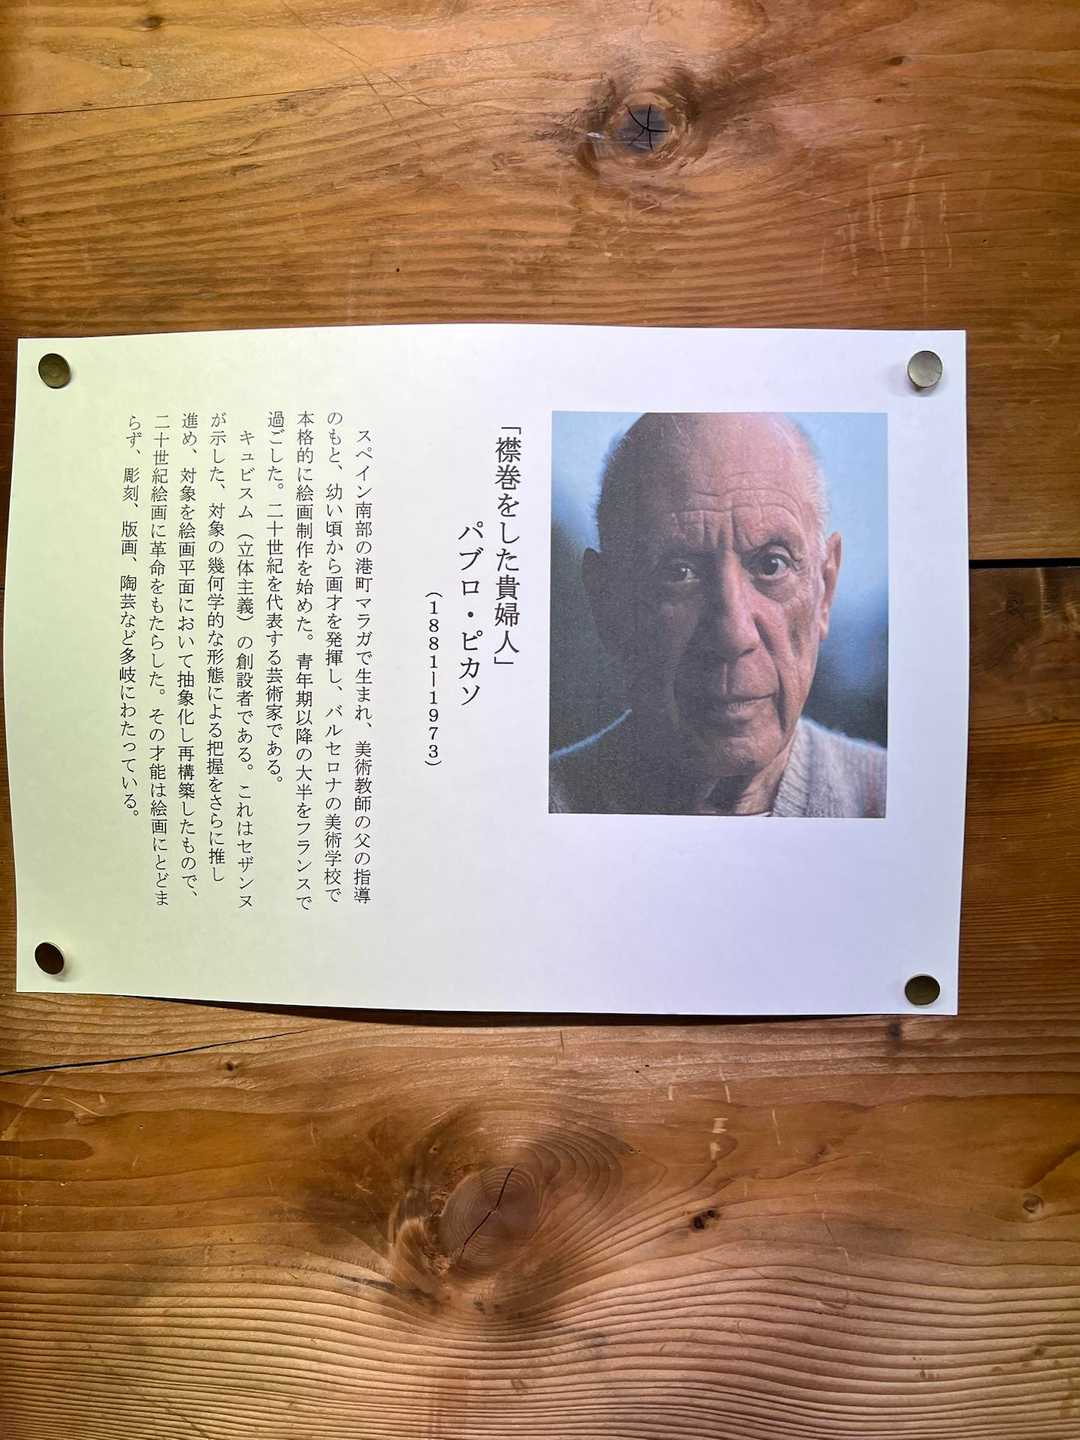 「襟巻をした貴婦人」
パブロ・ピカソ
(1881ー1973)
スペイン南部の港町マラガで生まれ、美術教師の父の指導
のもと、幼い頃から画才を発揮し、バルセロナの美術学校で
本格的に絵画制作を始めた。青年期以降の大半をフランスで
過ごした。二十世紀を代表する芸術家である。
キュビスム（立体主義）の創設者である。これはセザンヌ
が示した、対象の幾何学的な形態による把握をさらに推し
進め、対象を絵画平面において抽象化し再構築したもので、
二十世紀絵画に革命をもたらした。その才能は絵画にとどま
らず、彫刻、版画、陶芸など多岐にわたっている。